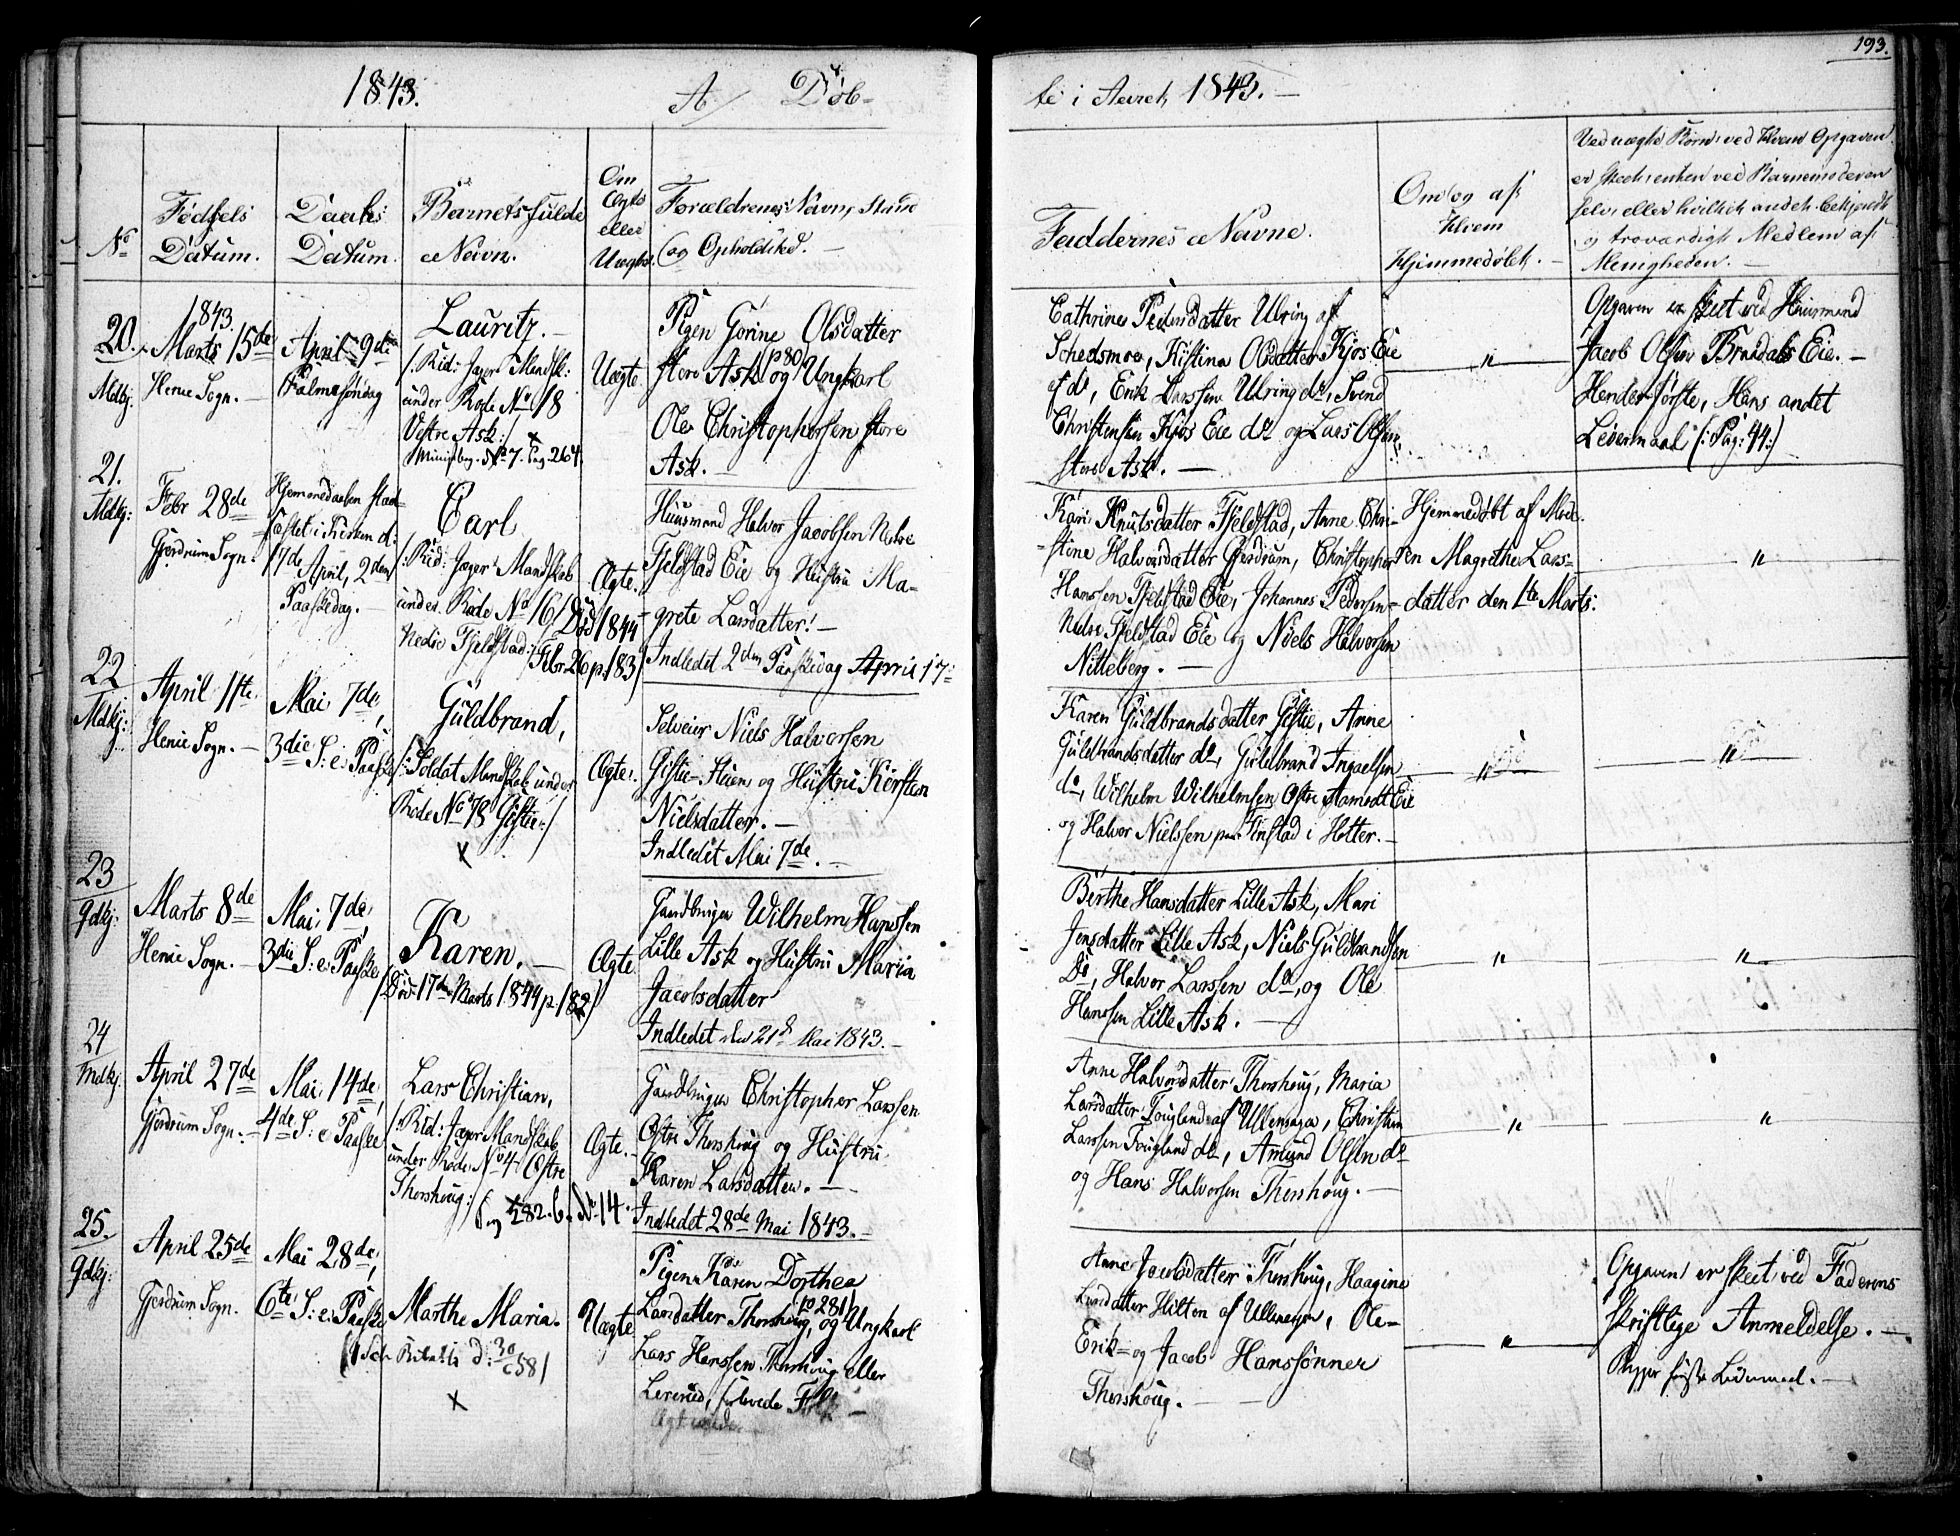 193.
1843. A/ Døb-
te i Aaret 1843. –
No
Fødsels
Datum.
Daabs
Datum.
Barnets fulde
Navn.
Om
Ægte
eller
Uægte.
Forældrenes Navn, Stand
og Opholdsted. –
Faddernes Navne.
Om og af
Hvem
Hjemmedøbt. –
Ved uægte Børn, ved Hvem Opgaven
er skeet, enten ved Barnemoderen
selv, eller hvilket andet bekjendt
og troværdigt Medlem af
Menigheden. –
20.
Mdkj:
1843.
Marts 15de
Henie Sogn. –
April 9de
Palmesøndag
Lauritz. –
/: Rid: Jæger Mandsk:
under Rode No 18
Vestre Ask:/
Minist bog. No 7. Pag. 264.
Uægte
Pigen Gorine Olsdatter
store Ask p80 og Ungkarl
Ole Christophersen store
Ask. –
Cathrine Pedersdatter Ulring af
Schedsmoe, Kistina Olsdatter Kjos Eie
af do, Erik Larssen Ulring do, Svend
Christensen Kjos Eie do og Lars Olsen
store Ask. –
"
Opgaven er skeet ved Huusmand
Jacob Olsen Brandals Eie. –
Hendes første, Hans andet
Leiermaal (: Pag: 44:)
21.
Mdkj:
Febr 28de
Gjerdrum Sogn.
Hjemmedaaben stad-
fæstet i Kirken d:
17de April, 2den
Paaskedag. –
Carl
/: Rid: Jæger Mandskab
under Rode No 16
Nedre Fjeldstad:/
Ægte.
Død 1844
Febr. 26 p. 183)
Huusmand Halvor Jacobsen Nedre
Fjeldstad Eie og Hustru Ma-
grete Larsdatter! –
Indledet 2den Paaskedag April 17:
Kari Knutsdatter Fjeldstad, Anne Chri-
stine Halvorsdatter Gjerdrum, Christopher
Hanssen Fjeldstad Eie, Johannes Pedersen
Nedre Fjeldstad Eie og Niels Halvorsen
Nitteberg. –
Hjemmedøbt af Mod-
ren Magrethe Lars-
datter den 1te Marts:
"
22
Mdkj:
April 11te
Henie Sogn. –
Mai 7de,
3die S: e: Paaske
Guldbrand,
/: Soldat Mandskab under
Rode No 78 Gistie:/
x
Ægte:
Selveier Niels Halvorsen
Gistie-Huen og Hustru Kersten
Nielsdatter. –
Indledet Mai 7de. –
Karen Guldbrandsdatter Gistie, Anne
Guldbrandsdatter do, Guldbrand Ingaelsen
do, Wilhelm Wilhelmsen Østre Aamodt Eie
og Halvor Nielssen paa Finstad i Holter. –
"
"
23
Qdkj:
Marts 8de
Henie Sogn. –
Mai 7de,
3die S: e: Paaske
Karen. –
(Død 17de Marts 1844 p. 182)
Ægte
Gaardbruger Wilhelm Hanssen
Lille Ask og Hustru Maria
Jacobsdatter
Indledet den 21de Mai 1843. –
Berthe Hansdatter Lille Ask, Mari
Jensdatter Lille Ask, Niels Guldbrandsen
Do, Halvor Larssen do, og Ole
Hanssen Lille Ask. –
"
"
24
Mdkj
April 27de
Gjerdrum Sogn. –
Mai 14de,
4de S: e: Paaske
Lars Christian,
/: Rid: Jæger Mandskab
under Rode No 4 Østre
Thorshoug:/
Pag 282. b. No 14.
Ægte. –
Gaardbruger Christopher Larssen
Østre Thorshoug og Hustru
Karen Larsdatter. –
Indledet 28de Mai 1843. –
Anne Halvorsdatter Thorshoug, Maria
Larsdatter Fougland af Ullensager, Christian
Larssen Fougland do, Amund Olsen do
og Hans Halvorsen Thorshoug. –
"
"
25.
Qdkj:
April 25de
Gjerdrum Sogn.
Mai 28de,
6te S: e: Paaske
Marthe Maria.
x
Uægte
Pigen Karen Dorthea
Larsdatter Thorshoug, p 281 og Ungkarl
Lars Hanssen Thorshoug eller
Anne Jacobsdatter Thorshoug, Haagine
Larsdatter Hilton af Ullensager, Ole-
Erik- og Jacob Hanssønner
Thorshoug. –
"
Opgaven er skeet ved Faderens
skriftlige Anmeldelse. –
Begges første Leiermaal. –